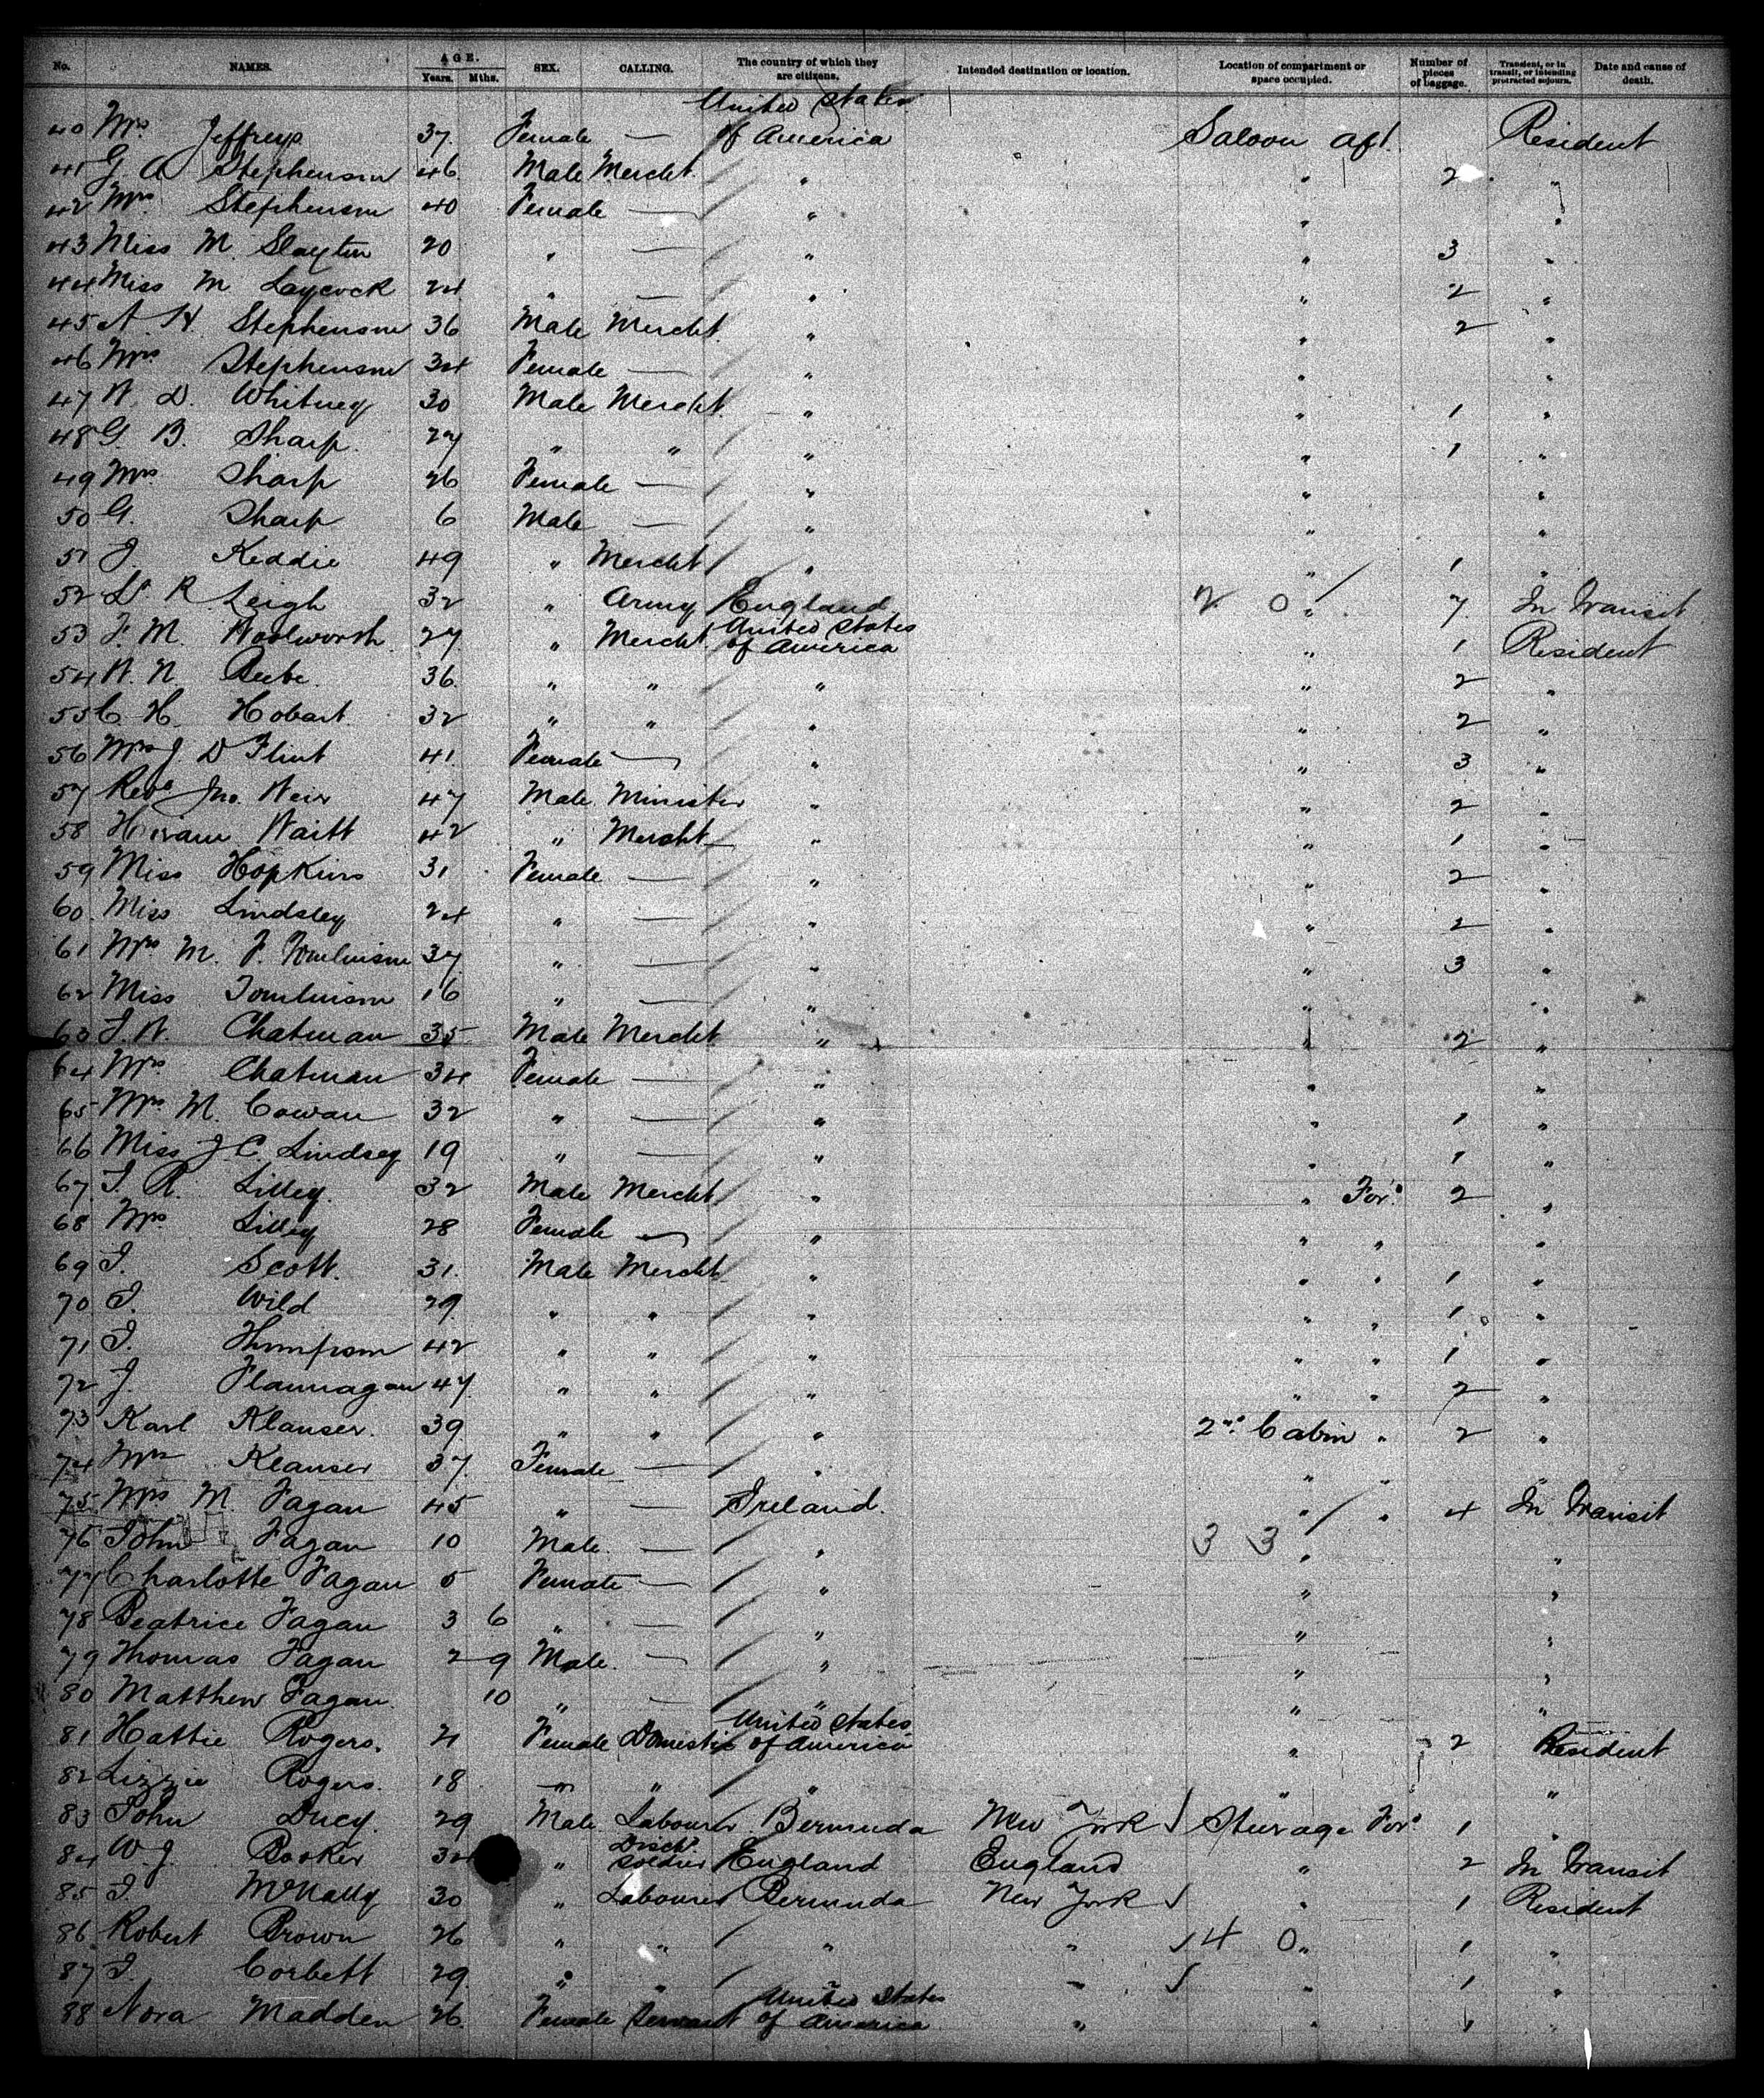 No. NAMES. AGE. Years. Mths. SEX. CALLING. The country of which they are citizens. Intended destination or location. Location of compartment or space occupied. Number of pieces of baggage. Transient, or in transit, or intending protracted sojourn. Date and cause of death.
40 Mrs Jeffreys 37 Female — United States of America Saloon aft. Resident
41 G A Stephenson 46 Male Mercht " " 2 "
42 Mrs Stephenson 40 Female — " " "
43 Miss M. Slayton 20 " — " " 3 "
44 Miss M Laycock 24 " — " " 2 "
45 A. H. Stephenson 36 Male Mercht " " 2 "
46 Mrs Stephenson 34 Female — " " "
47 W. D. Whitney 30 Male Mercht " " 1 "
48 G. B. Sharp 27 " " " " 1 "
49 Mrs Sharp 26 Female — " " "
50 G. Sharp 6 Male — " " "
51 J. Keddie 49 " Mercht " " 1 "
52 Lt R Leigh 32 " Army England 2 0 " 7 In Transit
53 F. M. Woolworth 27 " Mercht United States of America " 1 Resident
54 W. N. Beebe 36 " " " " 2 "
55 C H. Hobart 32 " " " " 2 "
56 Mrs J D Flint 41 Female — " " 3 "
57 Revd Jno. Weir 47 Male Minister " " 2 "
58 Hiram Waitt 42 " Mercht " " 1 "
59 Miss Hopkins 31 Female — " " 2 "
60 Miss Lindsley 24 " — " " 2 "
61 Mrs M. F. Tomlinson 37 " — " " 3 "
62 Miss Tomlinson 16 " — " " "
63 J. W. Chatman 35 Male Mercht " " 2 "
64 Mrs Chatman 34 Female — " " "
65 Mrs M. Cowan 32 " — " " 1 "
66 Miss J. C. Lindsey 19 " — " " 1 "
67 T. R. Lilley 32 Male Mercht " " For'd 2 "
68 Mrs Lilley 28 Female — " " " "
69 T. Scott 31 Male Mercht " " " 1 "
70 T. Wild 29 " " " " " 1 "
71 T. Thompson 42 " " " " " 1 "
72 J. Flannagan 47 " " " " " 2 "
73 Karl Klauser 39 " " " 2nd Cabin " 2 "
74 Mrs Klauser 37 Female — " " " "
75 Mrs M. Fagan 45 " — Ireland " " 4 In Transit
76 John Fagan 10 Male — " 3 3 " "
77 Charlotte Fagan 5 Female — " " "
78 Beatrice Fagan 3 6 " — " " "
79 Thomas Fagan 2 9 Male — " " "
80 Matthew Fagan 10 " — " " "
81 Hattie Rogers 21 Female Domestic United States of America " 2 Resident
82 Lizzie Rogers 18 " " " " "
83 John Ducy 29 Male Labourer Bermuda New York Steerage For'd 1 "
84 W. J. Booker 32 " Disch'd Soldier England England " 2 In Transit
85 T. McNally 30 " Labourer Bermuda New York " 1 Resident
86 Robert Brown 26 " " " " 4 0 " 1 "
87 T. Corbett 29 " " " " " 1 "
88 Nora Madden 26 Female Servant United States of America " " 1 "